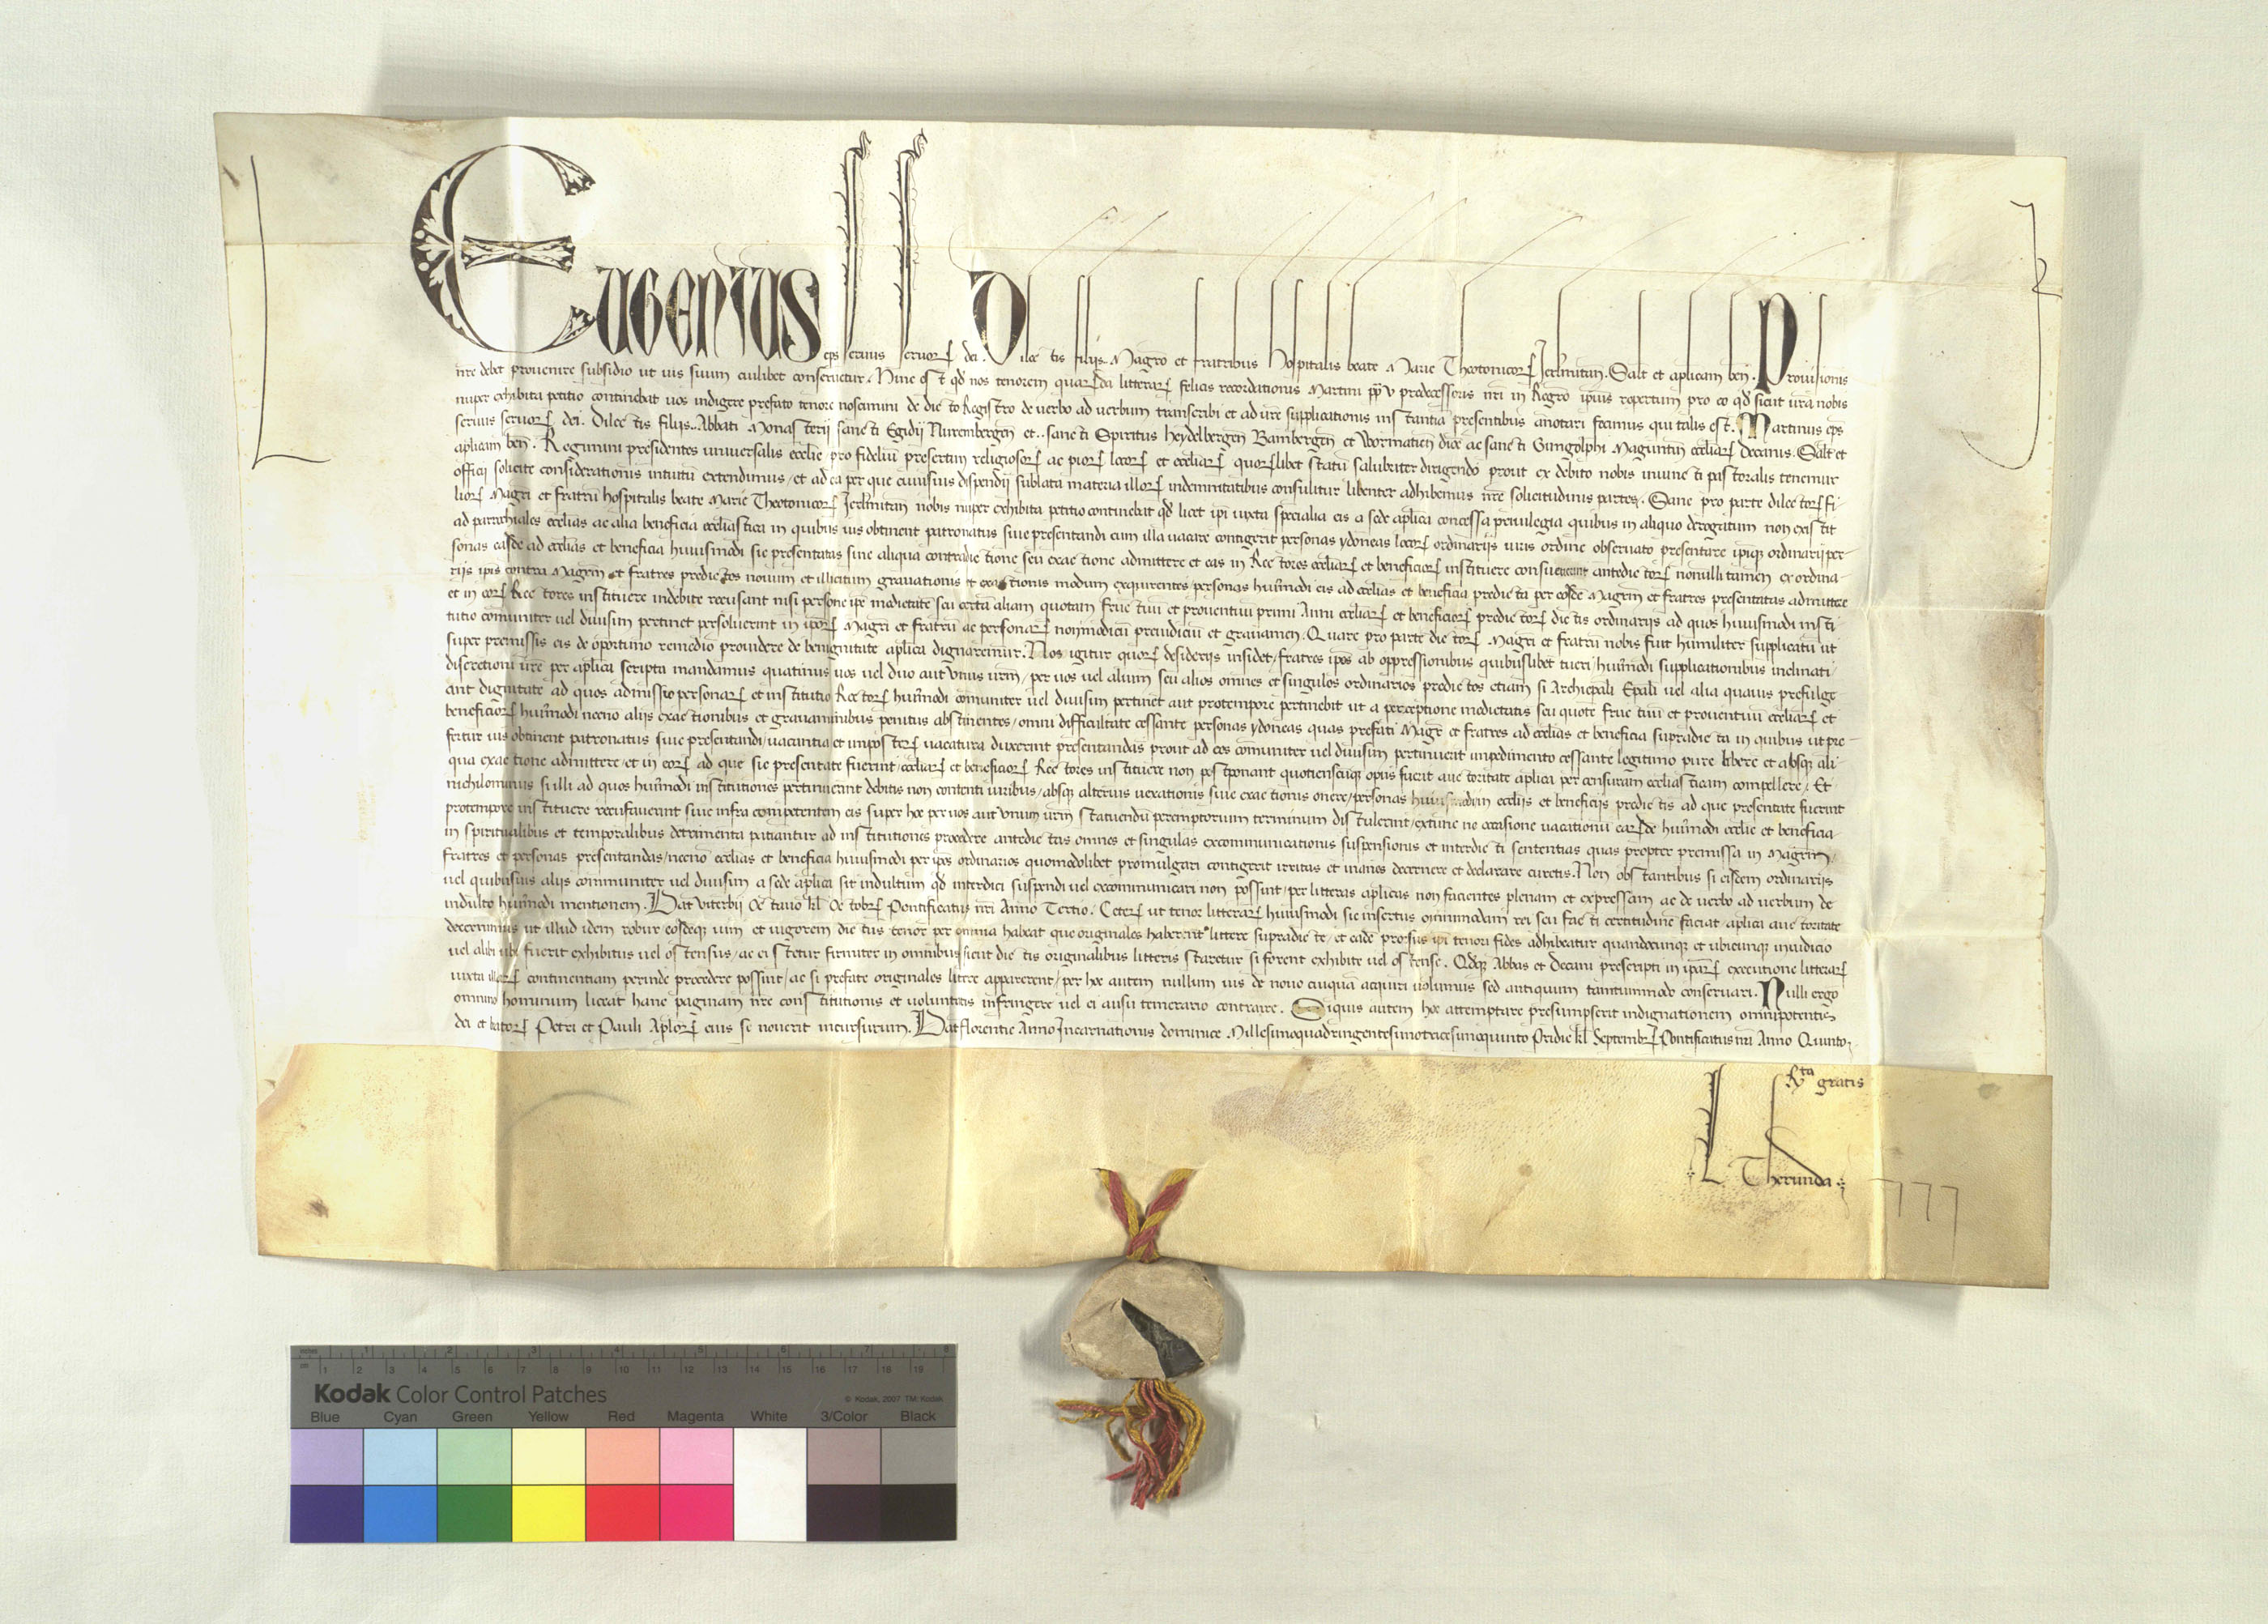 Eugenius eps servus servorꝝ dei. Dilectis filijs Magro et fratribus Hospitalis beate Marie Theotonicorꝝ Jerlimitan. Salt et aplicam ben. Provisionis
nre debet provenire subsidio ut ius suum cuilibet conservetur. Hinc est qd nos tenorem quarūda litterarꝝ felicis recordationis Martini pp v predecessoris nri in Regro ipius repertum pro eo qd sicut vra nobis
nuper exhibita petitio continebat vos indigere prefato tenore noscimini de dicto Registro de verbo ad verbum transcribi et ad vre supplicationis instantia presentibus anotari fecimus qui talis est. Martinus eps
servus servorꝝ dei. Dilectis filijs .. Abbati Monasterij sancti Egidij Nurembergen et .. sancti Spiritus Heydelbergen Bambergen et Wormatien dioc ac sancti Gungolphi Maguntin eccliarꝝ Decanis. Salt et
aplicam ben. Regimini presidentes universalis ecclie pro fideliū presertim religiosorꝝ ac piorꝝ locorꝝ et eccliarꝝ quorꝝlibet statu salubriter dirigendo prout ex debito nobis iniuncti pastoralis tenemur
officij solicite considerationis intuitū extendimus, et ad ea per que cuiusvis dispendij sublata materia illorꝝ indemnitatibus consulitur libenter adhibemus nre solicitudinis partes. Sane pro parte dilectorꝝ fi-
liorꝝ Magri et fratrū hospitalis beate Marie Theotonicorꝝ Jerlimitan nobis nuper exhibita petitio continebat qd licet ipi iuxta specialia eis a sede aplica concessa privilegia quibus in aliquo derogatum non existit
ad parrochiales ecclias ac alia beneficia ecclesiastica in quibus ius obtinent patronatus sive presentandi cum illa vacare contigerit personas ydoneas locorꝝ ordinarijs iuris ordine observato presentare ipiqꝫ ordinarij per-
sonas easdē ad ecclias et beneficia huiusmodi sic presentatas sine aliqua contradictione seu exactione admittere et eas in Rectores eccliarꝝ et beneficiorꝝ instituere consueverant antedictorꝝ nonnulli tamen ex ordina-
rijs ipis contra Magrm et fratres predictos novum et illicitum gravationis et exactionis modum exquirentes, personas huiusmodi eis ad ecclias et beneficia predicta per eosdē Magrm et fratres presentatas admittere
et in eorꝝ Rectores instituere indebite recusant nisi persone ipe medietate seu certā aliam quotam fructuū et proventuū primi Anni eccliarꝝ et beneficiorꝝ predictorꝝ dictis ordinarijs ad quos huiusmodi insti-
tutio comuniter vel divisim pertinet persolverint in iporꝝ Magri et fratrū ac personarꝝ nonmodicū preiudiciū et gravamen. Quare pro parte dictorꝝ Magri et fratrū nobis fuit humiliter supplicatū ut
super premissis eis de oportuno remedio providere de benignitate aplica dignaremur. Nos igitur quorꝝ desiderijs insidet, fratres ipos ab oppressionibus quibuslibet tueri, huiusmodi supplicationibus inclinati
discretioni vre per aplica scripta mandamus quatinus vos vel duo aut unus vrm, per vos vel alium seu alios omnes et singulos ordinarios predictos etiam si Archiepali Epali vel alia quavis prefulge-
ant dignitate ad quos admissio personarꝝ et institutio Rectorꝝ huiusmodi comuniter vel divisim pertinet aut protempore pertinebit ut a perceptione medietatis seu quote fructuū et proventuū eccliarꝝ et
beneficiorꝝ huiusmodi necnō alijs exactionibus et gravaminibus penitus abstinentes, omni difficultate cessante personas ydoneas quas prefati Magr et fratres ad ecclias et beneficia supradicta in quibus ut pre-
fertur ius obtinent patronatus sive presentandi, vacantia et imposterꝝ vacatura duxerint presentandas prout ad eos comuniter vel divisim pertinuerit impedimento cessante legitimo pure libere et absqꝫ ali-
qua exactione admittere, et in eorꝝ ad que sic presentate fuerint, eccliarꝝ et beneficiorꝝ Rectores instituere non postponant quotienscūqꝫ opus fuerit auctoritate aplica per censuram ecclesiasticam compellere, Et
nichilominus si illi ad quos huiusmodi institutiones pertinuerint debitis non contenti iuribus, absqꝫ alterius vexationis sive exactionis onere, personas huiusmodi in ecclijs et beneficijs predictis ad que presentate fuerint
protempore instituere recusaverint sive infra competentem eis super hoc per vos aut unum vrm statuendū peremptorium terminum distulerint, extunc ne occasione vacationū earūdē huiusmodi ecclie et beneficia
in spiritualibus et temporalibus detrimenta patiantur ad institutionis procedere antedictas omnes et singulas excommunicationis suspensionis et interdicti sententias quas propter premissa in Magrm,
fratres et personas presentandas, necnō ecclias et beneficia huiusmodi per ipos ordinarios quomodolibet promulgari contigerit irritas et inanes decernere et declarare curetis. Non obstantibus si eisdem ordinarijs
vel quibusvis alijs communiter vel divisim a sede aplica sit indultum qd interdici suspendi vel excommunicari non possint, per litteras aplicas non facientes plenam et expressam ac de verbo ad verbum de
indulto huiusmodi mentionem. Dat Viterbij Octavo kl Octobrꝝ Pontificatus nri Anno Tertio. Ceterꝝ ut tenor litterarꝝ huiusmodi sic insertus omnimodam rei seu facti certitudinē faciat, aplica auctoritate
decernimus ut illud idem robur eosdeqꝫ vim et vigorem dictus tenor per omnia habeat que originales haberent littere supradicte, et eadē prorsus ipi tenori fides adhibeatur quandocunqꝫ et ubicunqꝫ iniudicio
vel alibi ubi fuerit exhibitus vel ostensus, ac ei stetur firmiter in omnibus sicut dictis originalibus litteris staretur si forent exhibite vel ostense. Qdqꝫ Abbas et Decani prescripti in iparꝝ executione litterarꝝ
iuxta illarꝝ continentiam perinde procedere possint, ac si prefate originales littre apparerent, per hoc autem nullum ius de novo cuiquā acquiri volumus sed antiquum tantummodo conservari. Nulli ergo
omnino hominum liceat hanc paginam nre constitutionis et voluntatis infringere vel ei ausu temerario contraire. Siquis autem hoc attemptare presumpserit indignationem omnipotentis
dei et beatorꝝ Petri et Pauli Aplorꝝ eius se noverit incursurum. Dat Florentie Anno Incarnationis dominice Millesimoquadringentesimotricesimoquinto Pridie kl Septembrꝝ Pontificatus nri Anno Quinto
Rta gratis
L Therunda
Kodak Color Control Patches
© Kodak, 2007 TM: Kodak
inches 1 2 3 4 5 6 7 8
cm 1 2 3 4 5 6 7 8 9 10 11 12 13 14 15 16 17 18 19
Blue Cyan Green Yellow Red Magenta White 3/Color Black